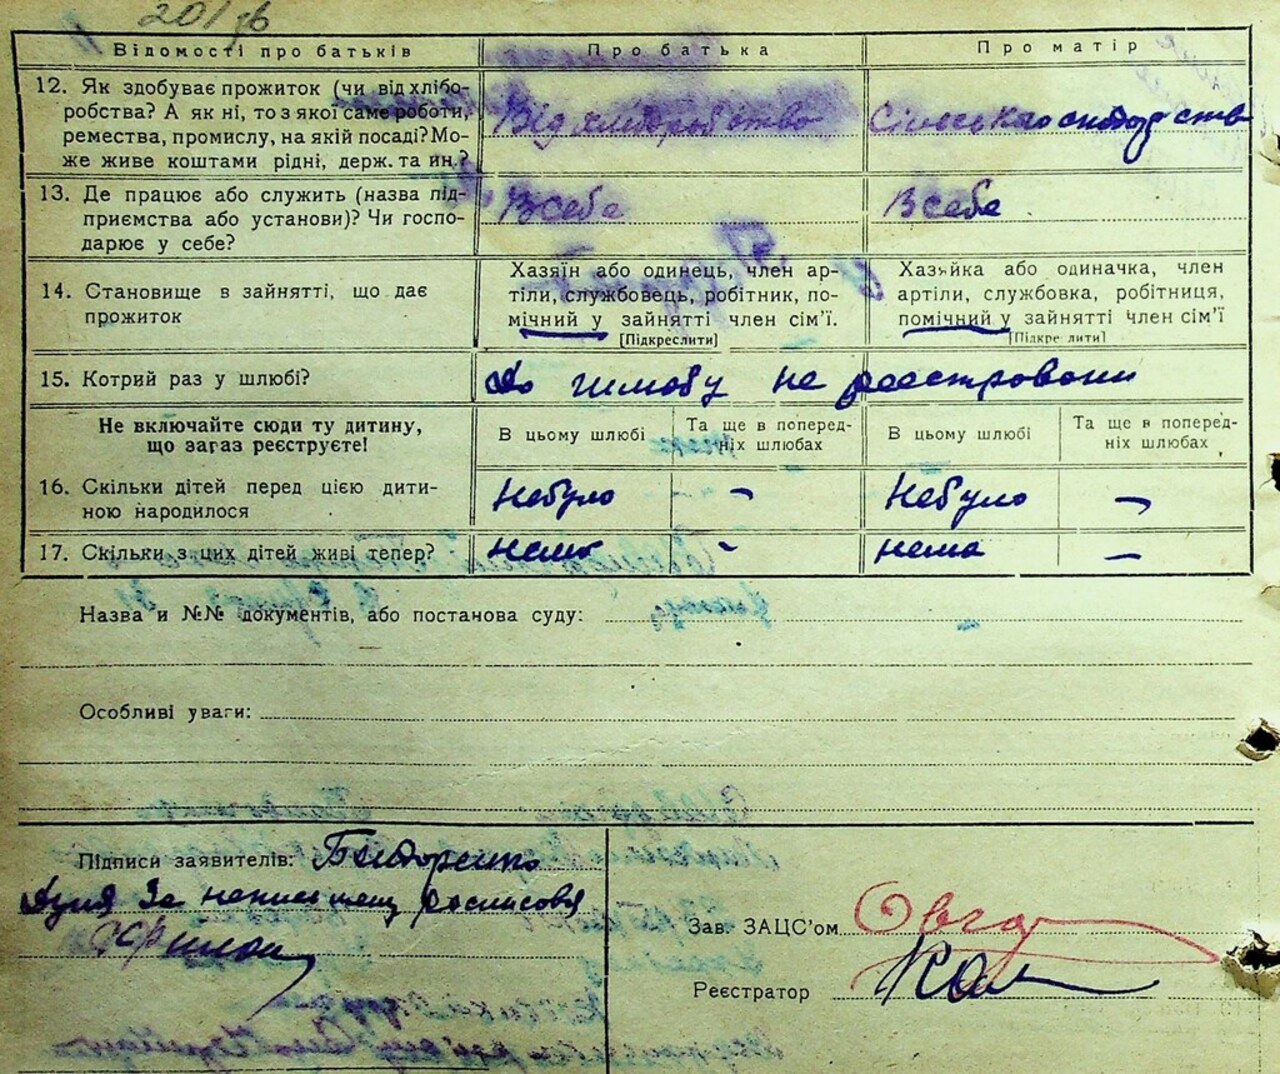 Відомості про батьків
Про батька
Про матір
12. Як здобуває прожиток (чи від хлібо-
робства? А як ні, то з якої саме роботи,
ремества, промислу, на якій посаді? Мо-
же живе коштами рідні, держ. та ин.?
Від хліборобство
13. Де працює або служить (назва під-
приємства або установи)? Чи госпо-
дарює у себе?
В себе
В себе
14. Становище в зайнятті, що дає
прожиток
Хазяїн або одинець, член ар-
тілі, службовець, робітник, по-
мічний у зайнятті член сім'ї.
[Підкреслити]
Хазяйка або одиначка, член
артілі, службовка, робітниця,
помічний у зайнятті член сім'ї
[Підкреслити]
15. Котрий раз у шлюбі?
До шлюбу не реєстровани
Не включайте сюди ту дитину,
що загаз реєструєте!
В цьому шлюбі
Та ще в поперед-
ніх шлюбах
В цьому шлюбі
Та ще в поперед-
ніх шлюбах
16. Скільки дітей перед цією дити-
ною народилося
Небуло
-
Небуло
-
17. Скільки з цих дітей живі тепер?
нема
-
нема
-
Назва и №№ документів, або постанова суду:
Особливі уваги:
Підписи заявителів:
За
Зав. ЗАЦС'ом
Реєстратор